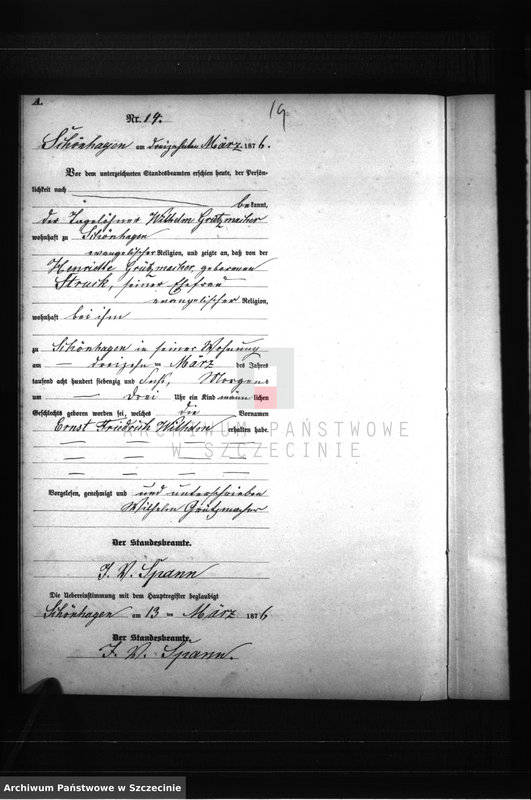 A.
Nr. 19.
19
Schönhagen am dreizehnten März 1876.
Vor dem unterzeichneten Standesbeamten erschien heute, der Persön-
lichkeit nach
bekannt,
der Tagelöhner Wilhelm Grützmacher
wohnhaft zu Schönhagen
evangelischer Religion, und zeigte an, daß von der
Henriette Grützmacher, geborenen
seiner Ehefrau
evangelischer Religion,
wohnhaft bei ihm
zu Schönhagen in seiner Wohnung
am — dreizehn ten März des Jahres
tausend acht hundert siebenzig und sechs, Morgens
um — drei Uhr ein Kind männlichen
Geschlechts geboren worden sei, welches die Vornamen
Ernst Friedrich Wilhelm erhalten habe.
Vorgelesen, genehmigt und und unterschrieben
Wilhelm Grützmacher
Der Standesbeamte.
J. V. Spann
Die Uebereinstimmung mit dem Hauptregister beglaubigt
Schönhagen am 13 ten März 1876
Der Standesbeamte.
J. V. Spann.
ARCHIWUM PAŃSTWOWE
W SZCZECINIE
Archiwum Państwowe w Szczecinie